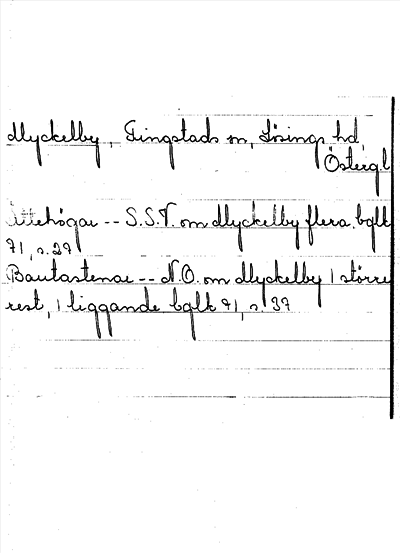 Myckelby, Tingstads sn, Lösings hd
Östergl
Ättehögar -- S.S.V. om Myckelby flera. bglk
71, s. 29
Bautastenar -- N.O. om Myckelby 1 större
rest, 1 liggande bglk 71, s. 37